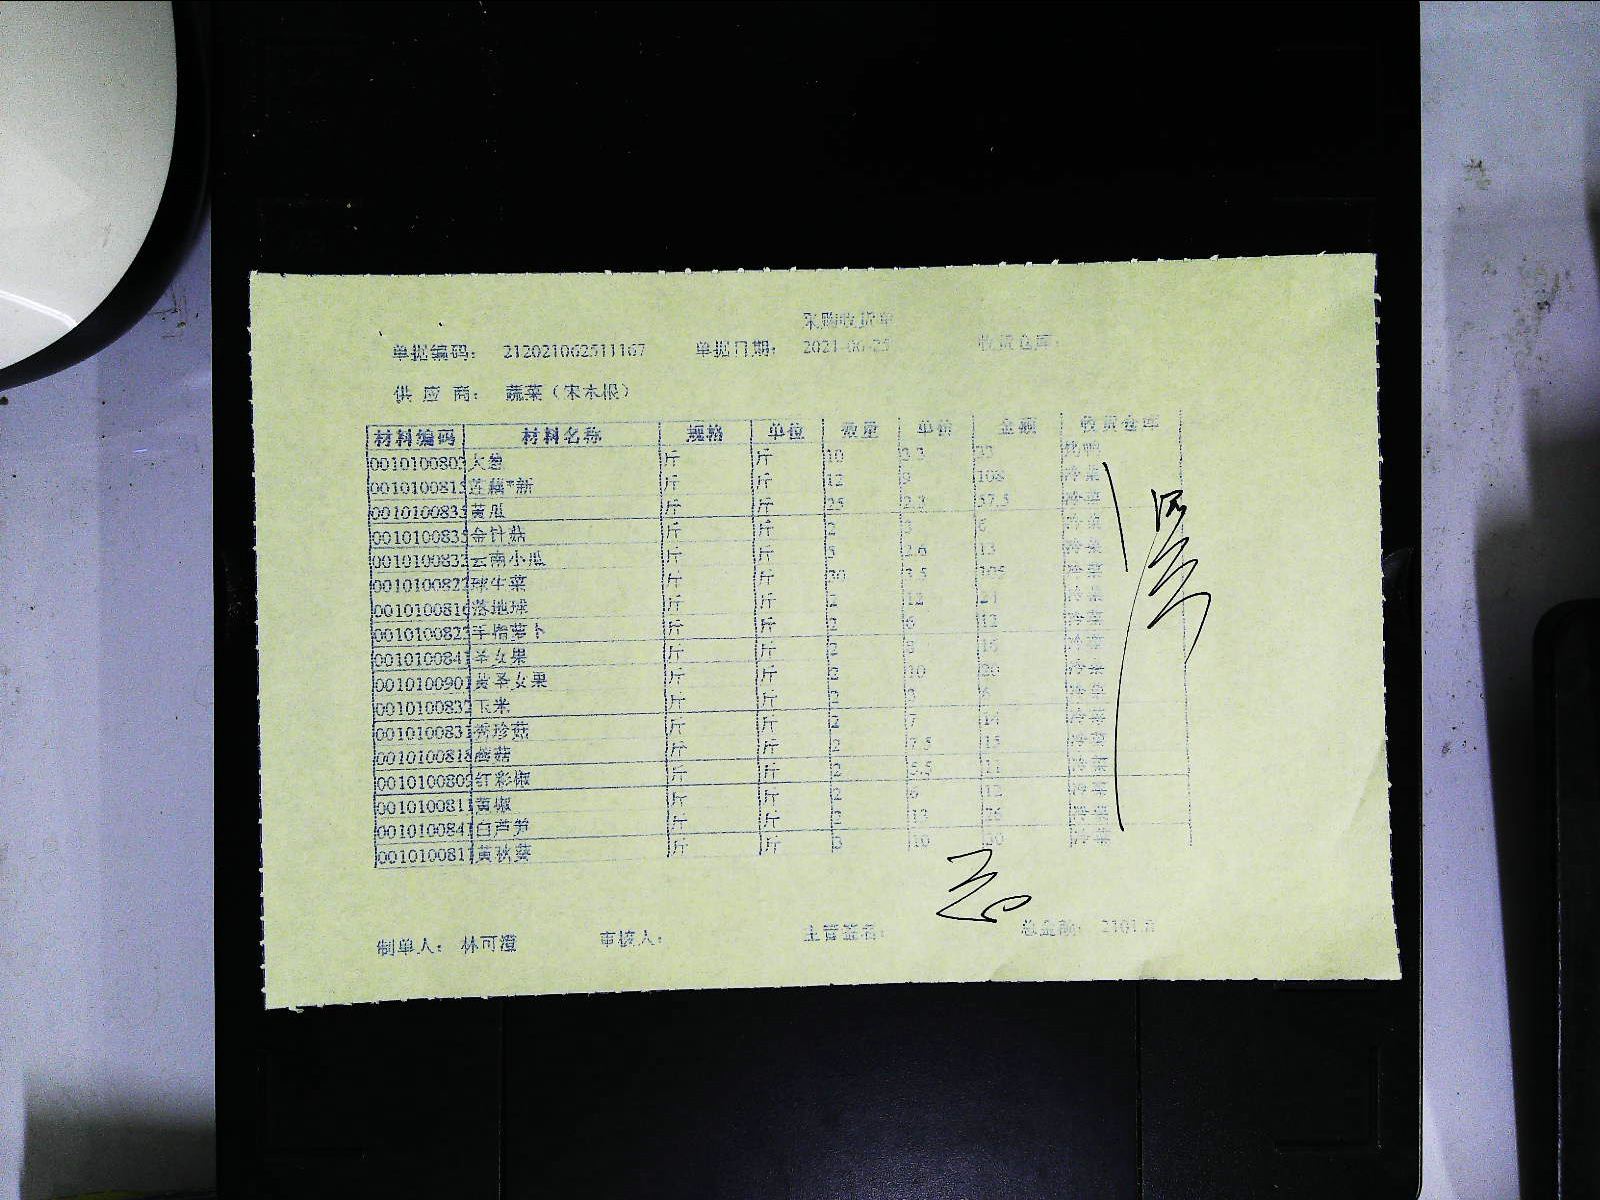 采购收货单
单据编码： 212021062511167 单据日期： 2021-06-25 收货仓库：
供 应 商： 蔬菜（宋木根）
材料编码 材料名称 规格 单位 数量 单价 金额 收货仓库
0010100803 大葱 斤 斤 10 23 烤鸭
0010100813 莲藕*新 斤 斤 12 9 108 冷菜
0010100833 黄瓜 斤 斤 25 2.3 57.5 冷菜
0010100835 金针菇 斤 斤 2 3 6 冷菜
0010100832 云南小瓜 斤 斤 5 2.6 13 冷菜
0010100822 球生菜 斤 斤 30 3.5 105 冷菜
0010100816 落地球 斤 斤 2 12 24 冷菜
0010100822 手指萝卜 斤 斤 2 6 12 冷菜
0010100841 圣女果 斤 斤 2 8 16 冷菜
0010100901 黄圣女果 斤 斤 2 10 20 冷菜
0010100832 玉米 斤 斤 2 3 6 冷菜
0010100831 秀珍菇 斤 斤 2 7 14 冷菜
0010100818 蘑菇 斤 斤 2 7.5 15 冷菜
0010100809 红彩椒 斤 斤 2 5.5 11 冷菜
0010100811 黄椒 斤 斤 2 6 12 冷菜
0010100841 白芦笋 斤 斤 2 13 26 冷菜
0010100811 黄秋葵 斤 斤 10 冷菜
制单人： 林可澄 审核人： 主管签名： 总金额：